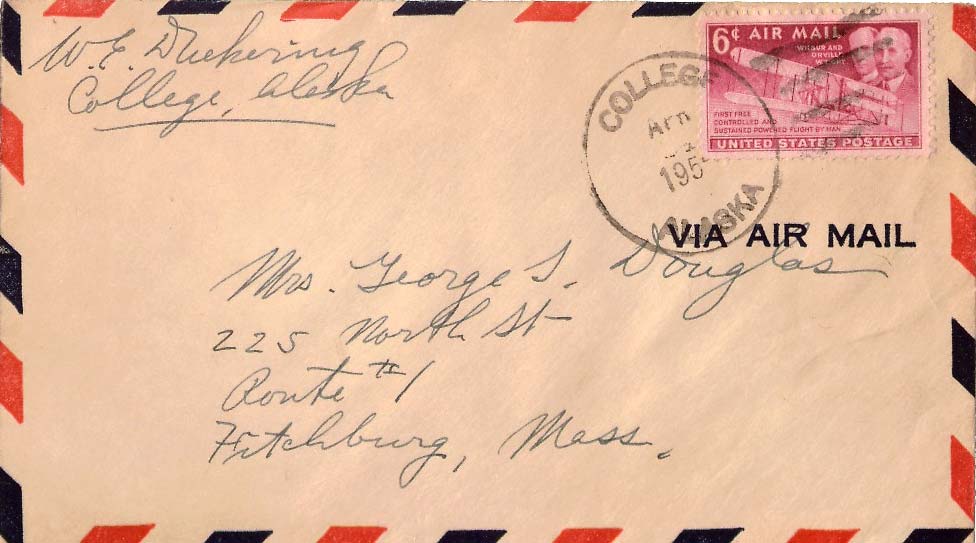 W. E. Duckering
College, Alaska
6¢ AIR MAIL
WILBUR AND
ORVILLE
FIRST FREE
CONTROLLED AND
SUSTAINED POWERED FLIGHT BY MAN
UNITED STATES POSTAGE
COLLEGE
APR
195
ALASKA
VIA AIR MAIL
Mrs. George S. Douglas
225 North St
Route #1
Fitchburg, Mass.